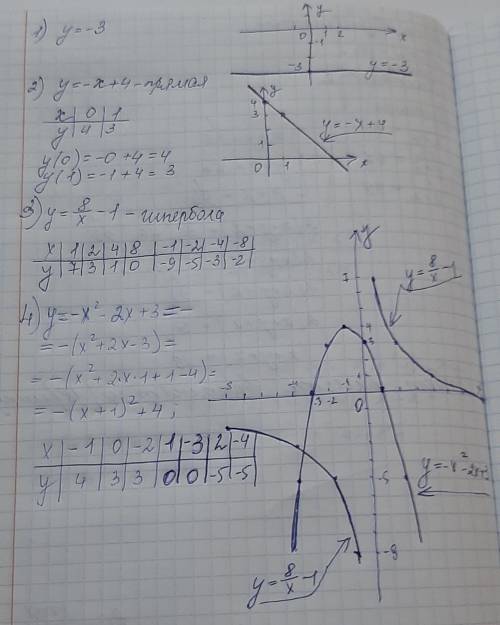 1) y=-3
y
0 1 2 x
-1
-3
y=-3
2) y=-x+4-прямая
x | 0 | 1
y | 4 | 3
y(0)=-0+4=4
y(1)=-1+4=3
y
4
3
1
0 1 x
y=-x+4
3) y=8/x-1-гипербола
x | 1 | 2 | 4 | 8 | -1 | -2 | -4 | -8
y | 7 | 3 | 1 | 0 | -9 | -5 | -3 | -2
4) y=-x²-2x+3=-
=-(x²+2x-3)=
=-(x²+2·x·1+1-4)=
=-(x+1)²+4;
x | -1 | 0 | -2 | 1 | -3 | 2 | -4
y | 4 | 3 | 3 | 0 | 0 | -5 | -5
y
7
y=8/x-1
4
3
-8 -4 -3 -2 -1
0
-5
y=-x²-2x+3
-9
y=8/x-1